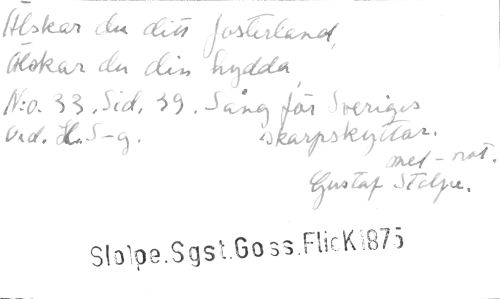 Älskar du ditt fosterland,
Älskar du din hydda,
N:o. 33. Sid. 39. Sång för Sveriges
Ord. H. S-g. skarpskyttar.
med - not.
Gustaf Stolpe.
Slolpe.Sgst.Goss.FlicK1875